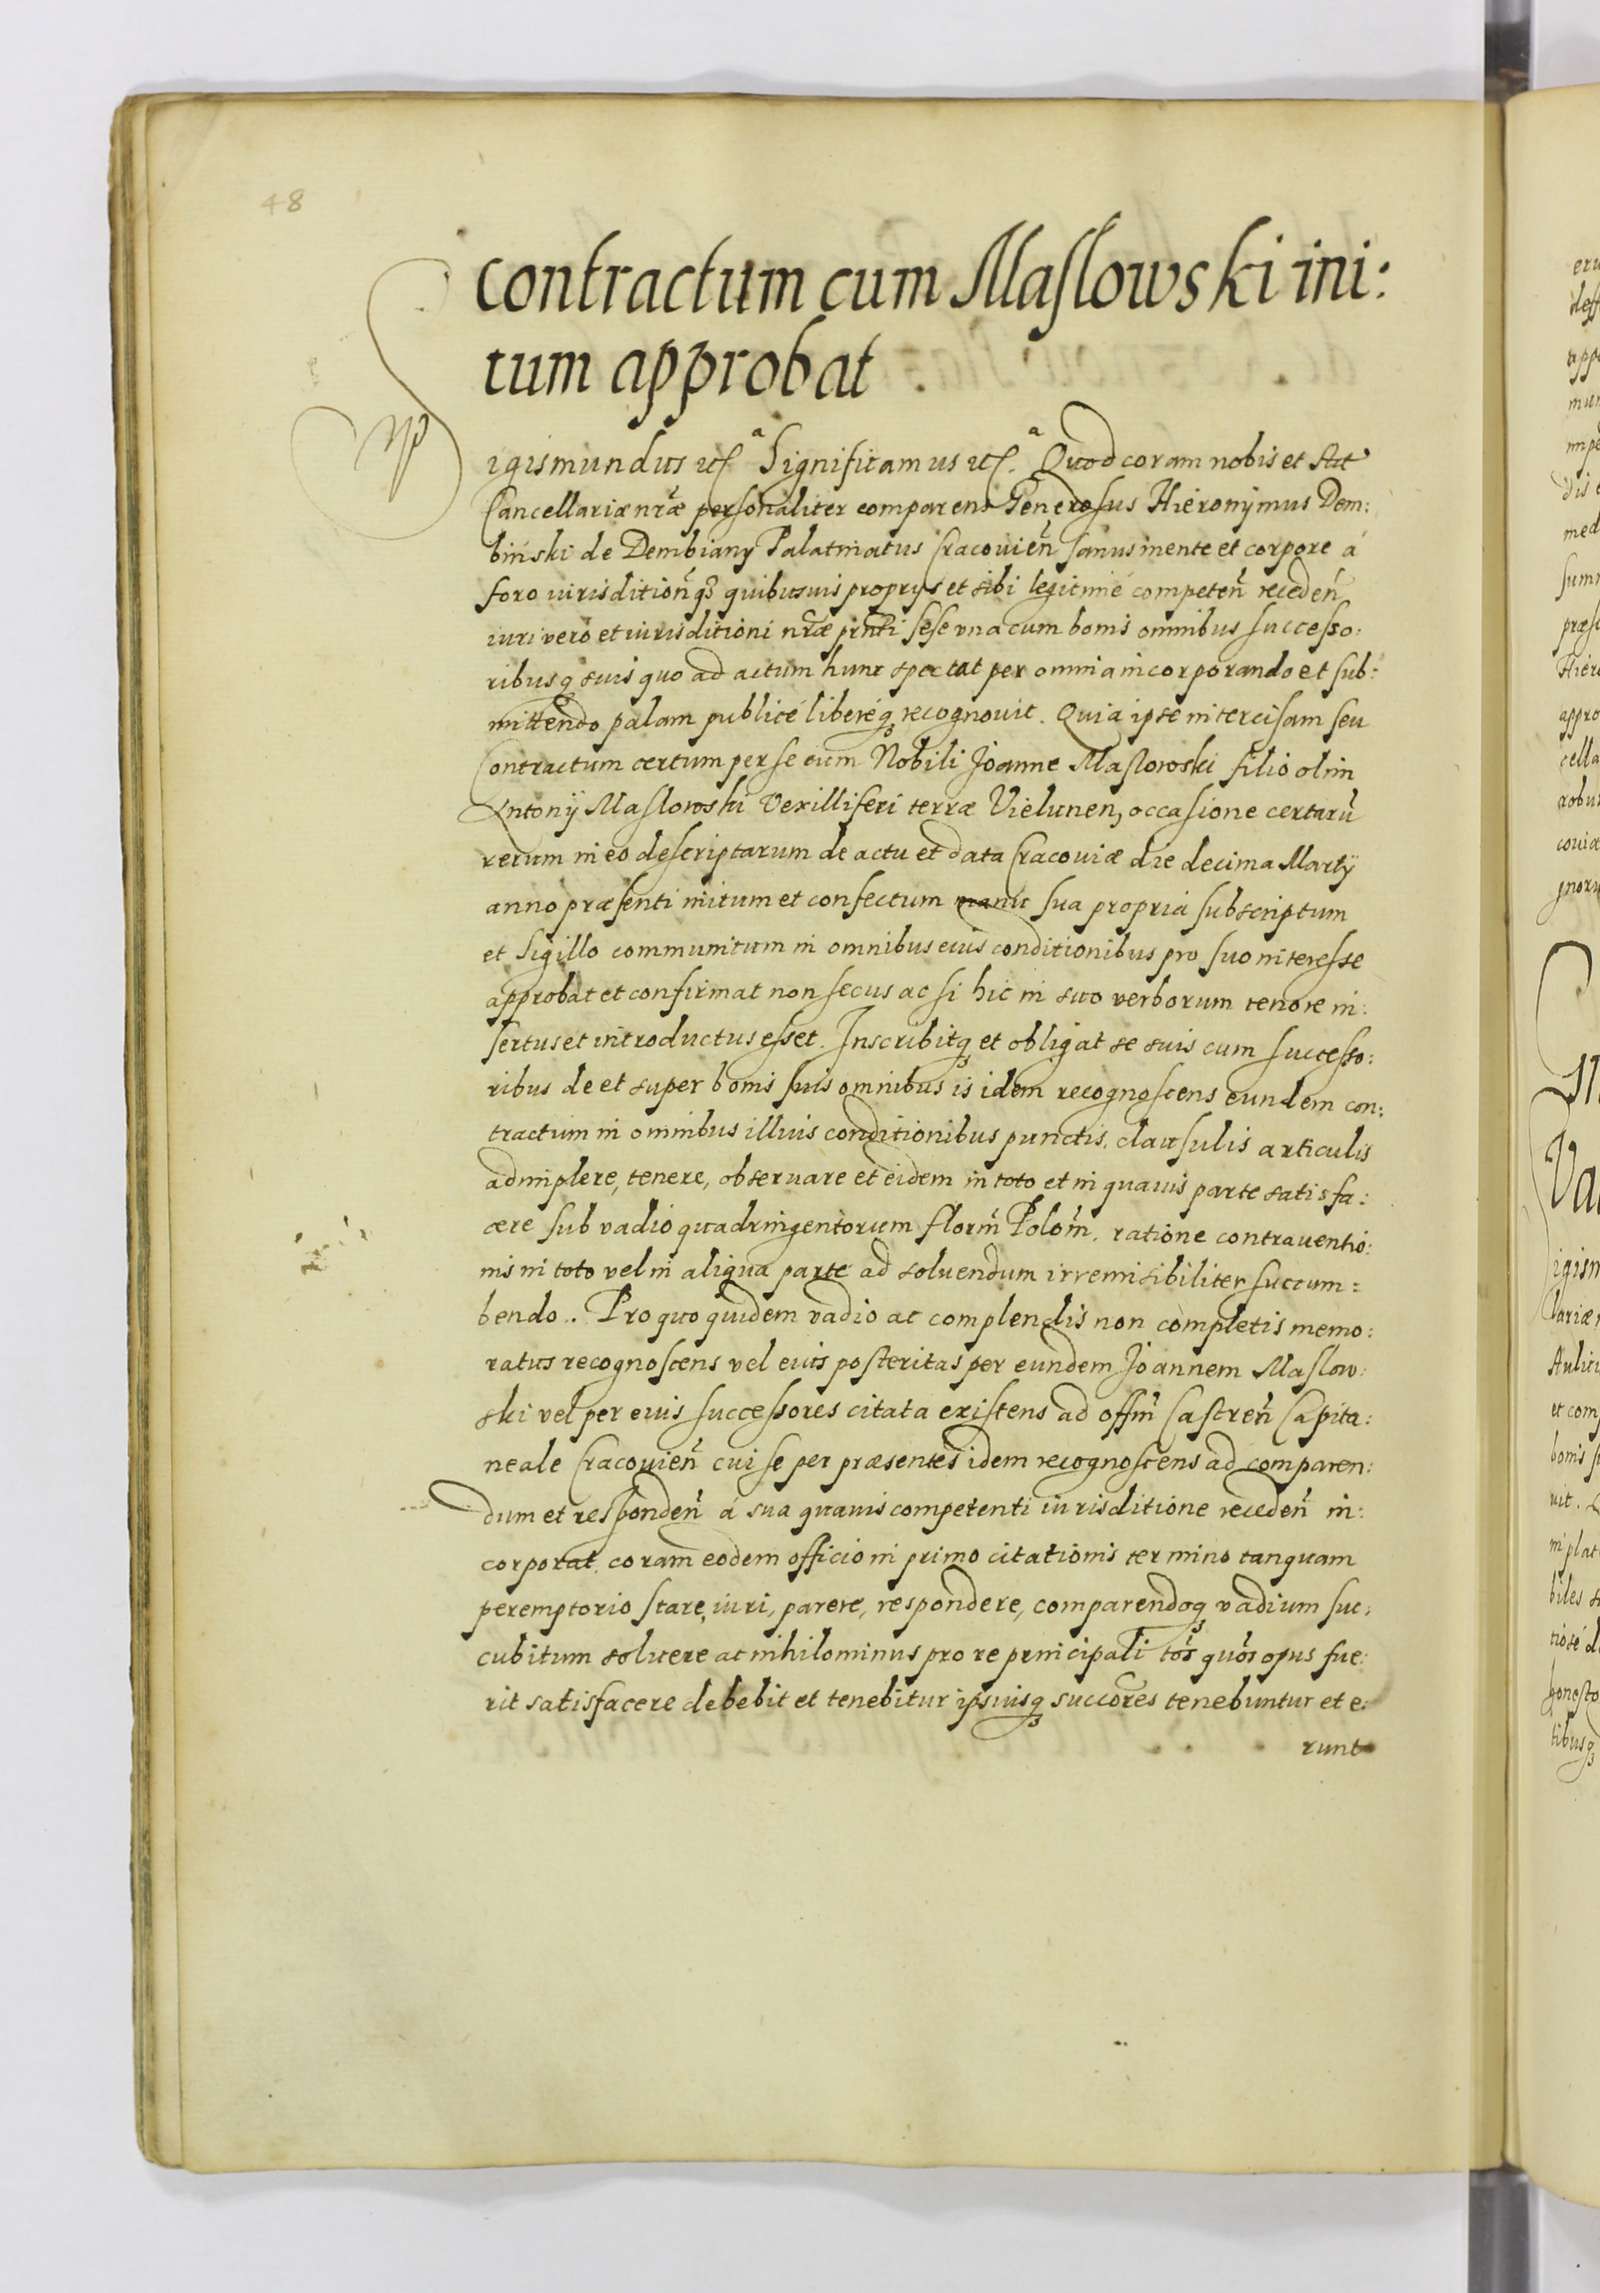 48
contractum cum Maslowski ini:
tum approbat
Sigismundus etc̃ª Significamus etc̃.ª Quod coram nobis et Act
Cancellariæ nr̃æ personaliter comparens Generosus Hieronymus Dem:
biński de Dembiany Palatinatus Cracouien̄ sanus mente et corpore á
foro iurisdition̄q̃ quibusuis proprijs et sibi legitimé competen̄ receden̄
iuri vero et iurisditioni nr̃æ prñti sese vna cum bonis omnibus successo:
ribusq̃ suis quo ad actum hunc spectat per omnia incorporando et sub:
mittendo palam publicé liberéq̃ recognouit. Quia ipse intercisam seu
Contractum certum per se cum Nobili Joanne Maslowski filio olim
Antonij Maslowski Vexilliferi terræ Vielunen, occasione certarū
rerum in eo descriptarum de actu et data Cracouiæ die decima Martij
anno præsenti initum et confectum manu sua propria subscriptum
et Sigillo communitum in omnibus eius conditionibus pro suo interesse
approbat et confirmat non secus ac si hic in suo verborum tenore in:
sertus et introductus esset. Inscribitq̃ et obligat se suis cum successo:
ribus de et super bonis suis omnibus is idem recognoscens eundem con:
tractum in omnibus illius conditionibus punctis, clausulis articulis
adimplere, tenere, obseruare et eidem in toto et in quauis parte satisfa:
cere sub vadio quadringentorum florm̄ Polom̄. ratione contrauentio:
nis in toto vel in aliqua parte ad soluendum irremisibiliter succum=
bendo.. Pro quo quidem vadio ac complendis non completis memo:
ratus recognoscens vel eius posteritas per eundem Joannem Maslow:
ski vel per eius successores citata existens ad offm̄ Castren̄ Capita:
neale Cracouien̄ cui se per præsentes idem recognoscens ad comparen:
dum et responden̄ á sua quauis competenti iurisditione receden̄ in:
corporat. coram eodem officio in primo citationis termino tanquam
peremptorio stare, iuri, parere, respondere, comparendoq̃ vadium suc:
cubitum soluere ac nihilominus pro re principali tós quós opus fue:
rit satisfacere debebit et tenebitur ipsiusq̃ succores tenebuntur et e:
runt